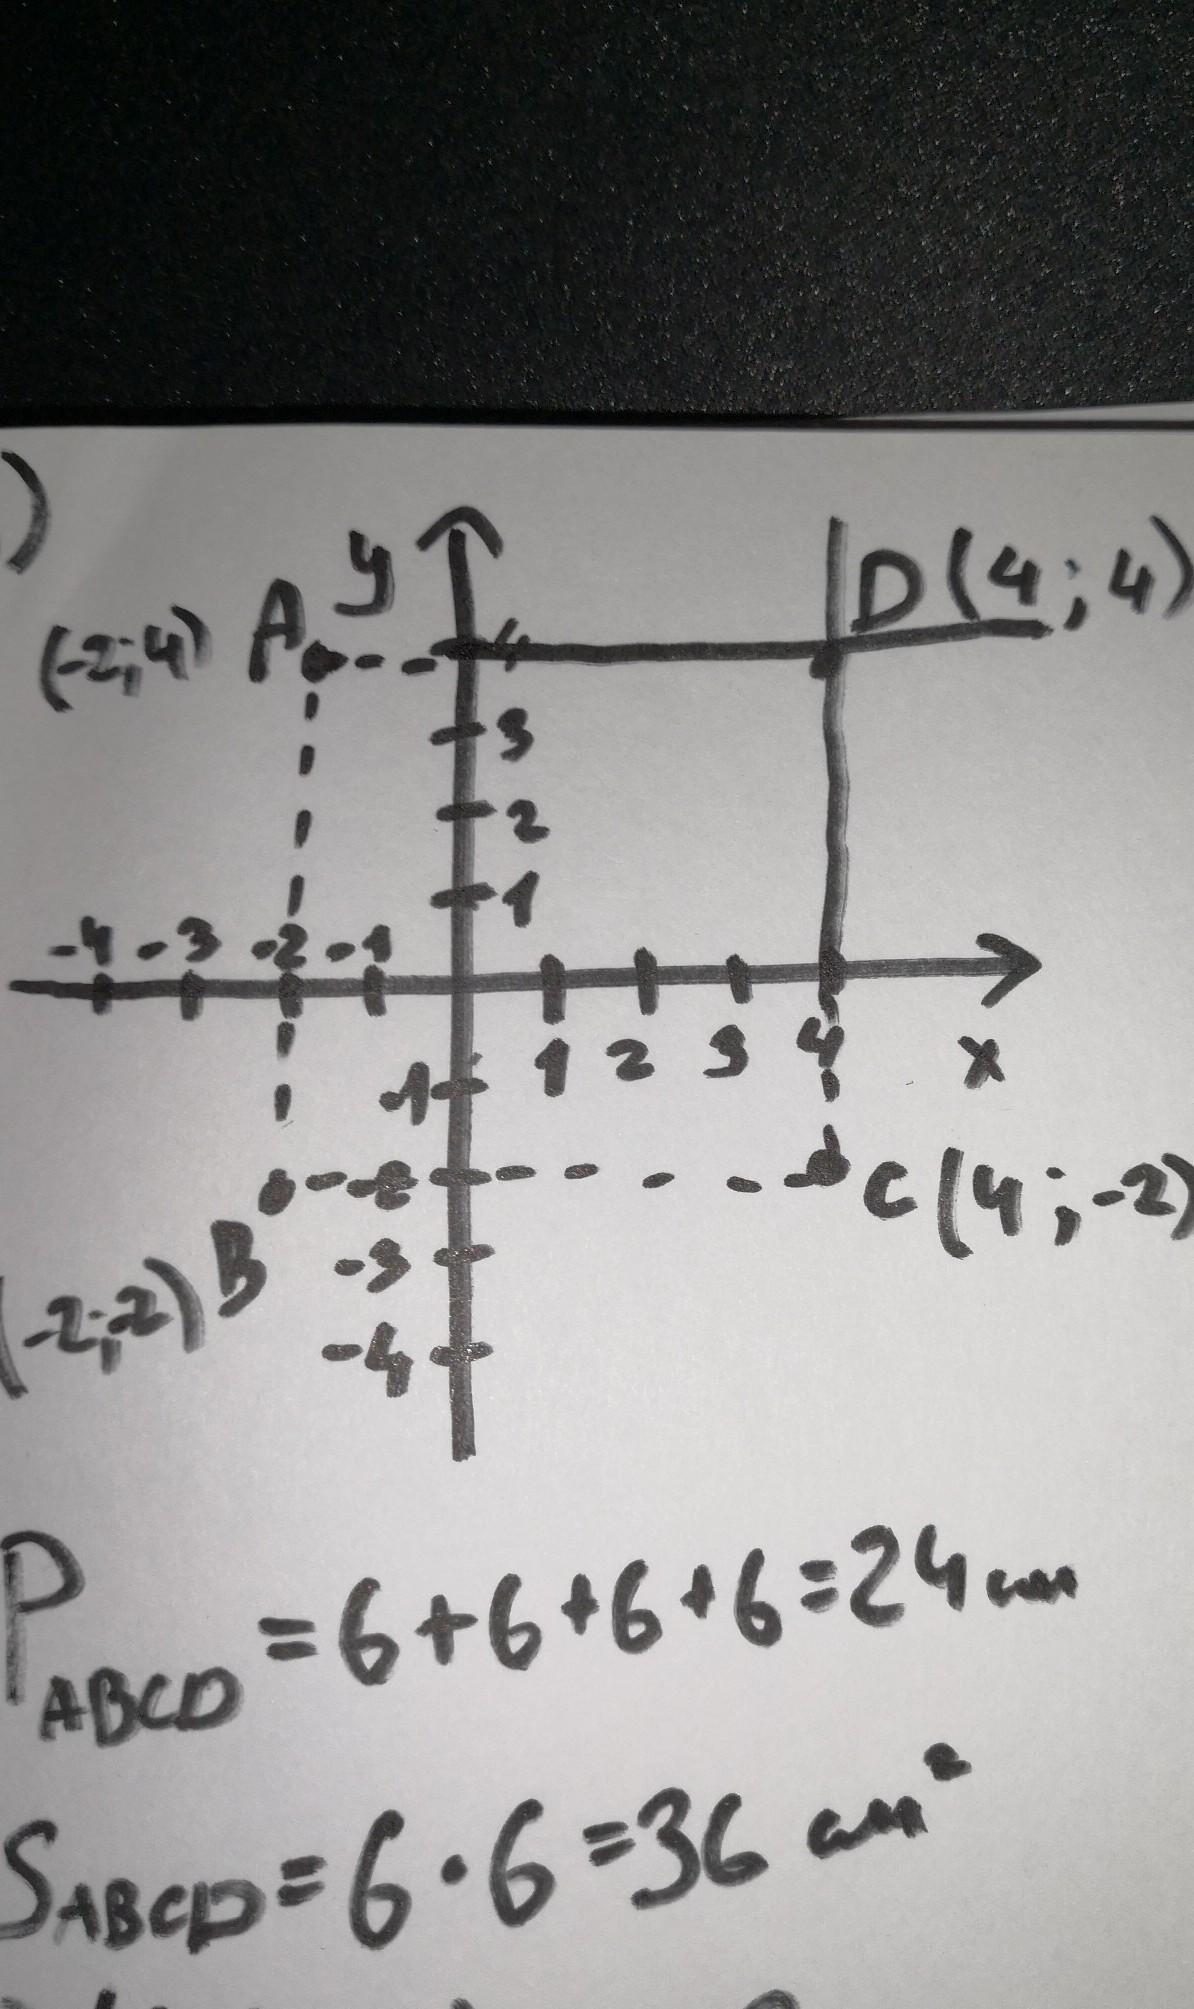 )
y
D(4;4)
(-2;4) A
4
3
2
1
-4 -3 -2 -1
1 2 3 4 x
-1
-2
C(4;-2)
-3
(-2;-2) B
-4
P ABCD = 6+6+6+6=24 см
S ABCD = 6·6=36 см²